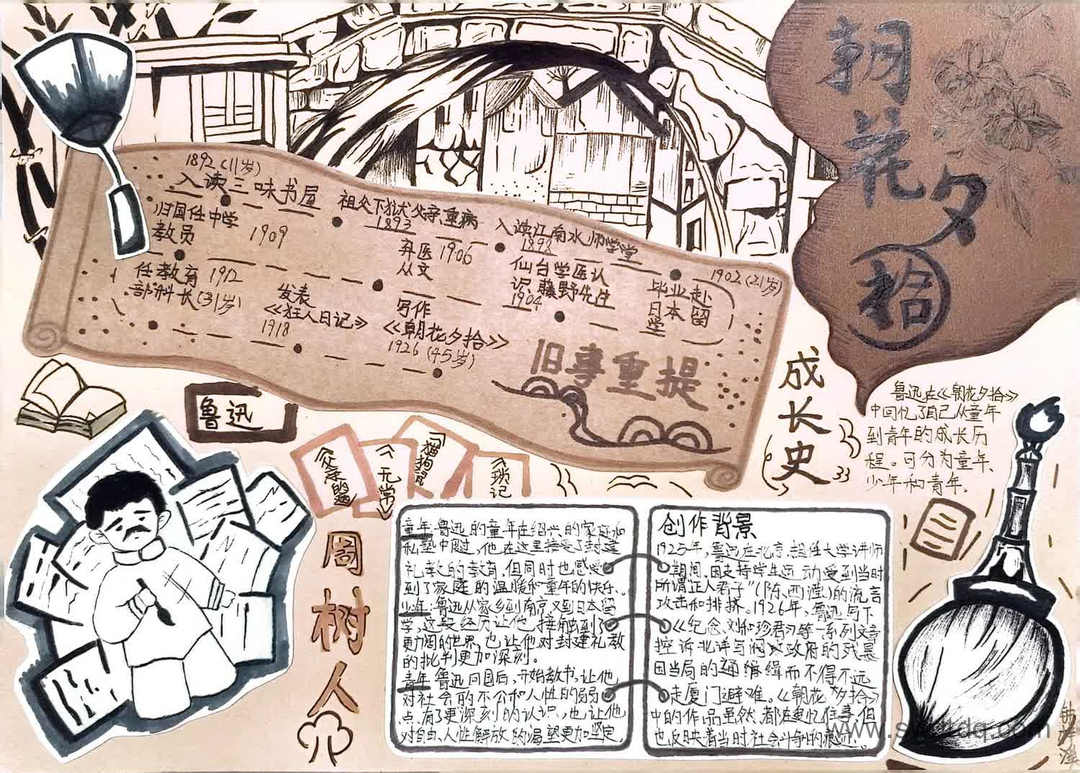 朝花夕拾
1892(11岁)
入读三味书屋
祖父下狱父亲重病
1893
入读江南水师学堂
1898
1902(21岁)
毕业赴
日本留
学
仙台学医认
识藤野先生
1904
弃医 1906
从文
归国任中学
教员 1909
任教育 1912
部科长(31岁)
发表
《狂人日记》
1918
写作
《朝花夕拾》
1926(45岁)
旧事重提
成长史
鲁迅在《朝花夕拾》
中回忆了自己从童年
到青年的成长历
程。可分为童年、
少年和青年。
鲁迅
父亲的病
无常
猫狗记
琐记
周树人
童年:鲁迅的童年在绍兴的家庭和
私塾中度过,他在这里接受了封建
礼教的教育,但同时也感受
到了家庭的温暖和童年的快乐。
少年:鲁迅从家乡到南京,又到日本留
学,这段经历让他接触到了
更广阔的世界,也让他对封建礼教
的批判更加深刻。
青年:鲁迅回国后,开始教书,让他
对社会的不公和人性的弱
点,有了更深刻的认识,也让他
对自由、人性解放的渴望更加坚定。
创作背景
1925年,鲁迅在北京担任大学讲师
期间,因支持学生运动受到当时
所谓正人君子"(陈西滢)的流言
攻击和排挤。1926年,鲁迅写下
《纪念刘和珍君》等一系列文章
控诉北洋与阀政府的残暴
因当局的通缉而不得不远
走厦门避难。《朝花夕拾》
中的作品虽然都是回忆往事,但
也反映着当时社会斗争的痕迹。